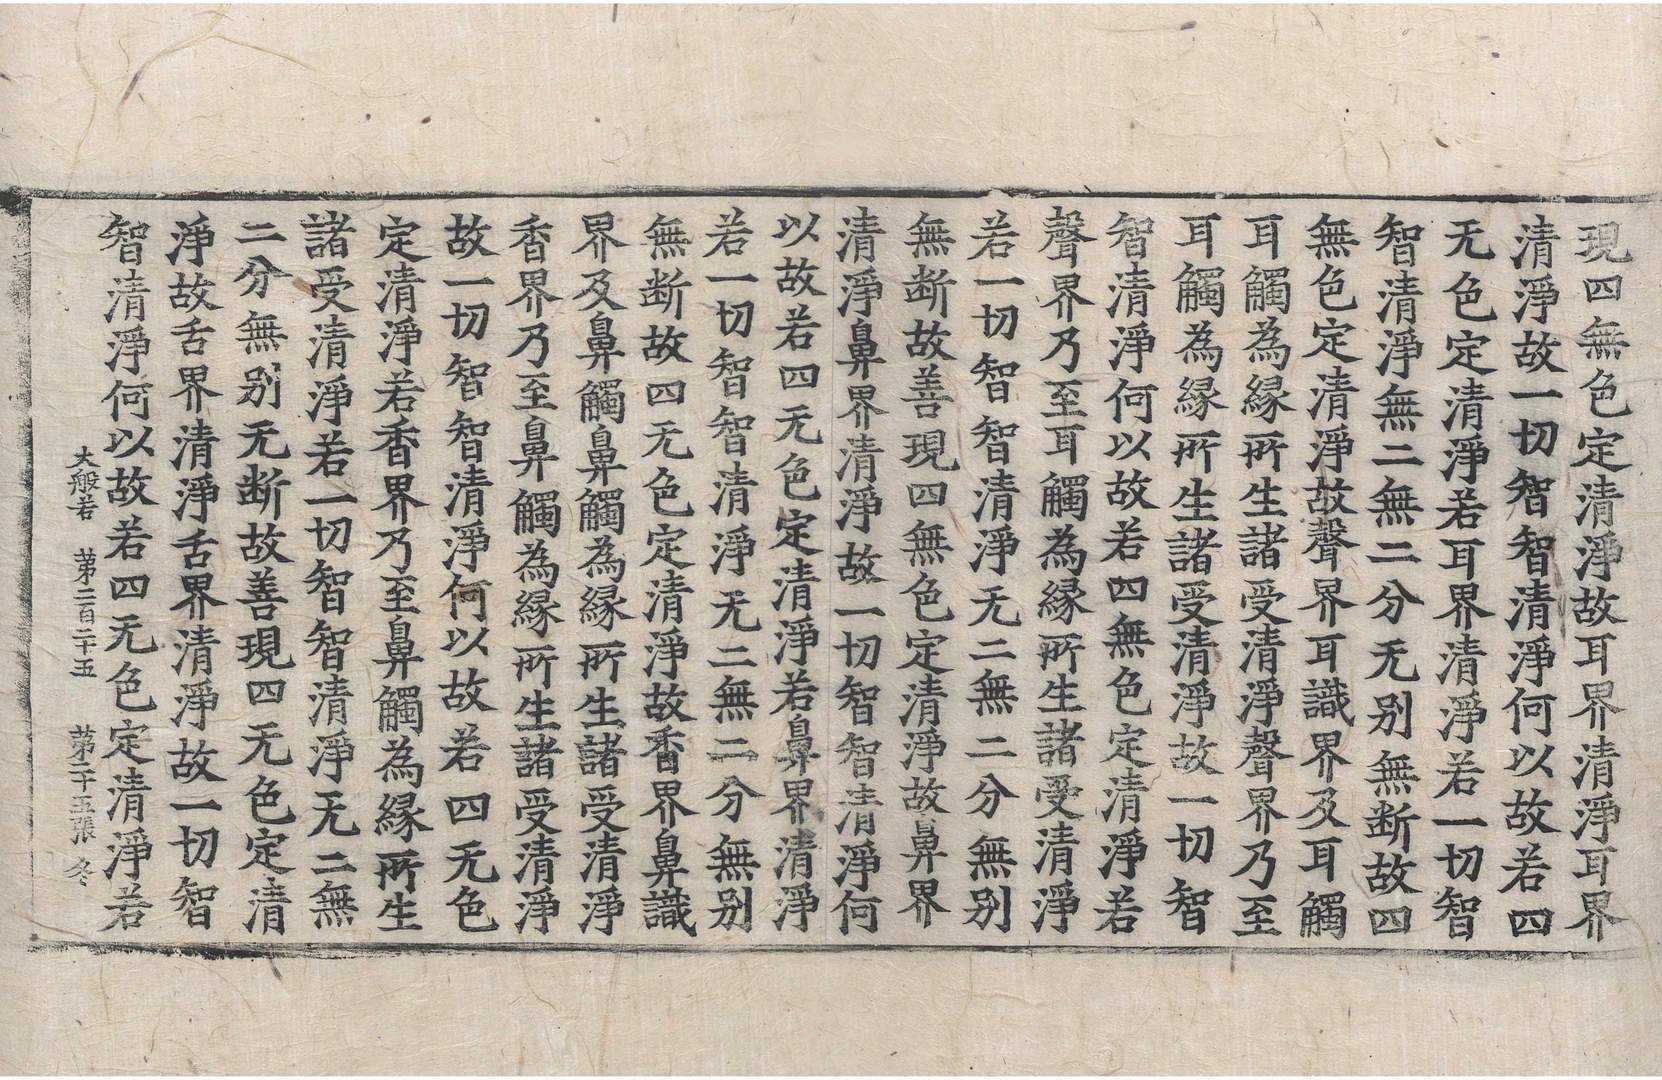 現四無色定清淨故耳界清淨耳界
清淨故一切智智清淨何以故若四
无色定清淨若耳界清淨若一切智
智清淨無二無二分无别無断故四
無色定清淨故聲界耳識界及耳觸
耳觸為縁所生諸受清淨聲界乃至
耳觸為縁所生諸受清淨故一切智
智清淨何以故若四無色定清淨若
聲界乃至耳觸為縁所生諸受清淨
若一切智智清淨无二無二分無别
無断故善現四無色定清淨故鼻界
清淨鼻界清淨故一切智智清淨何
以故若四无色定清淨若鼻界清淨
若一切智智清淨无二無二分無别
無断故四无色定清淨故香界鼻識
界及鼻觸鼻觸為縁所生諸受清淨
香界乃至鼻觸為縁所生諸受清淨
故一切智智清淨何以故若四无色
定清淨若香界乃至鼻觸為縁所生
諸受清淨若一切智智清淨无二無
二分無别无断故善現四无色定清
淨故舌界清淨舌界清淨故一切智
智清淨何以故若四无色定清淨若
大般若 苐二百二十五 苐二十五張 冬